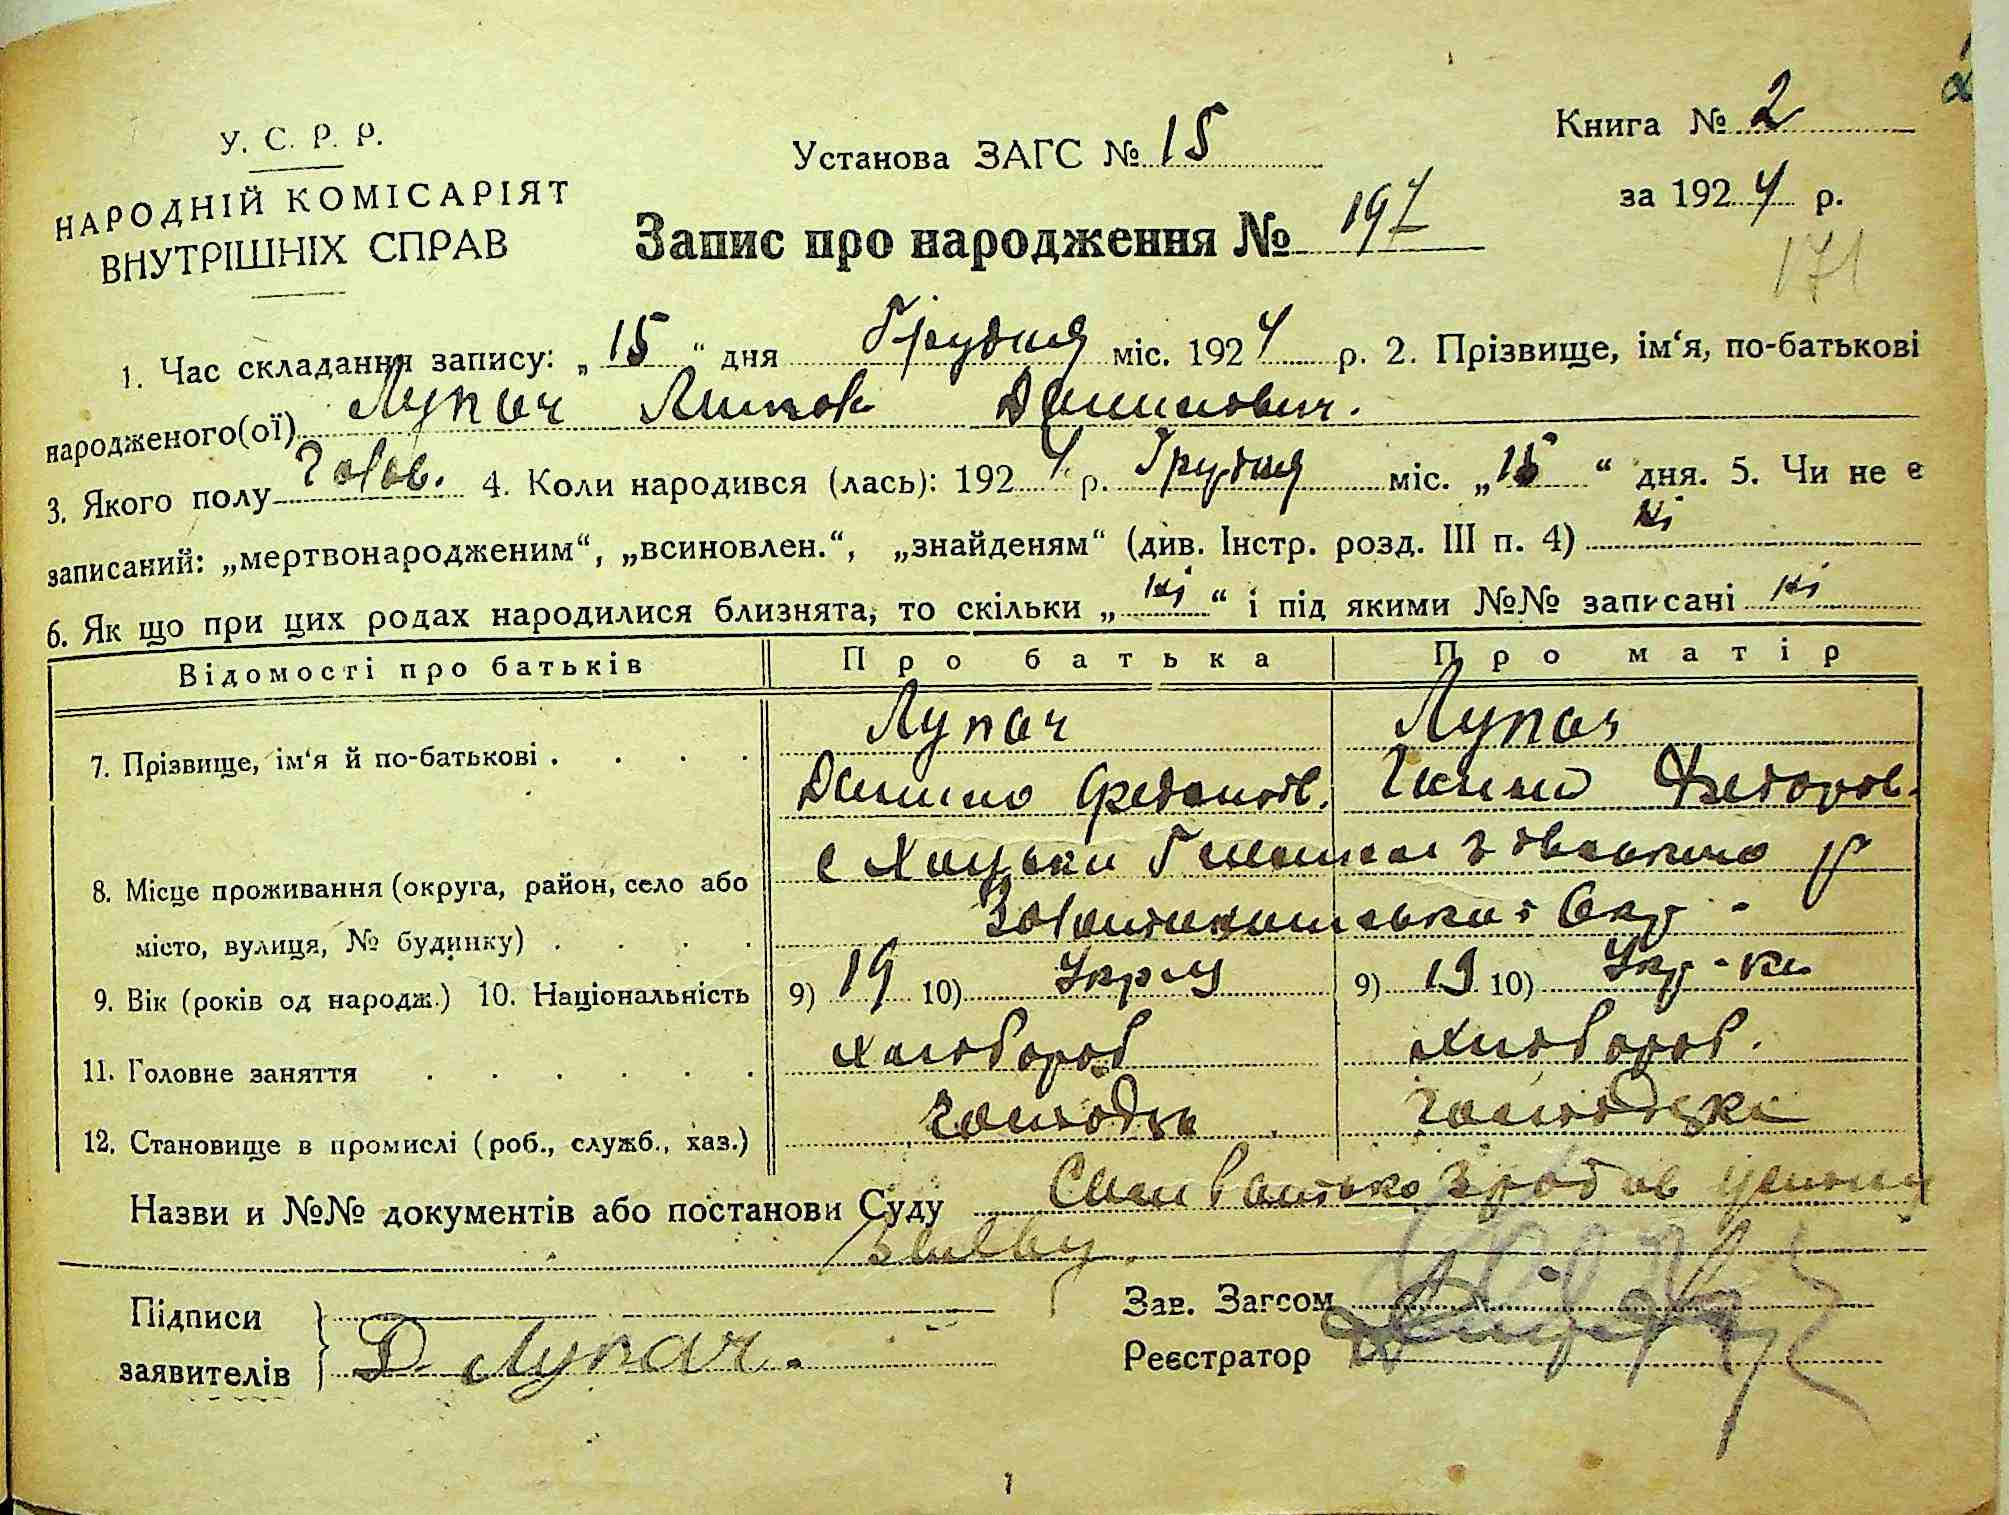 У. С. Р. Р.
НАРОДНІЙ КОМІСАРІЯТ
ВНУТРІШНІХ СПРАВ
Установа ЗАГС № 15
Книга № 2
за 1924 р.
Запис про народження № 197
171
1. Час складання запису: „15“ дня Грудня міс. 1924 р. 2. Прізвище, ім‘я, по-батькові
народженого(ої) Лупач Данилович.
3. Якого полу Чолов. 4. Коли народився (лась): 1924 р. Грудня міс. „15“ дня. 5. Чи не є
записаний: „мертвонародженим“, „всиновлен.“, „знайденям“ (див. Інстр. розд. III п. 4) ні
6. Як що при цих родах народилися близнята, то скільки „ні“ і під якими №№ записані ні
Відомості про батьків Про батька Про матір
7. Прізвище, ім‘я й по-батькові . . . . Лупач Лупач
Данило Федоров.
8. Місце проживання (округа, район, село або с Хоцьки
місто, вулиця, № будинку) . . . . Золотоношської Окр.
9. Вік (років од народж.) 10. Національність 9) 19 10) 9) 19 10) Укр-ка
11. Головне заняття . . . . . . Хлібороб Хлібороб.
12. Становище в промислі (роб., служб., хаз.)
Назви и №№ документів або постанови Суду Сам батько зробив усну
заяву.
Підписи
заявителів Д. Лупач.
Зав. Загсом
Реєстратор